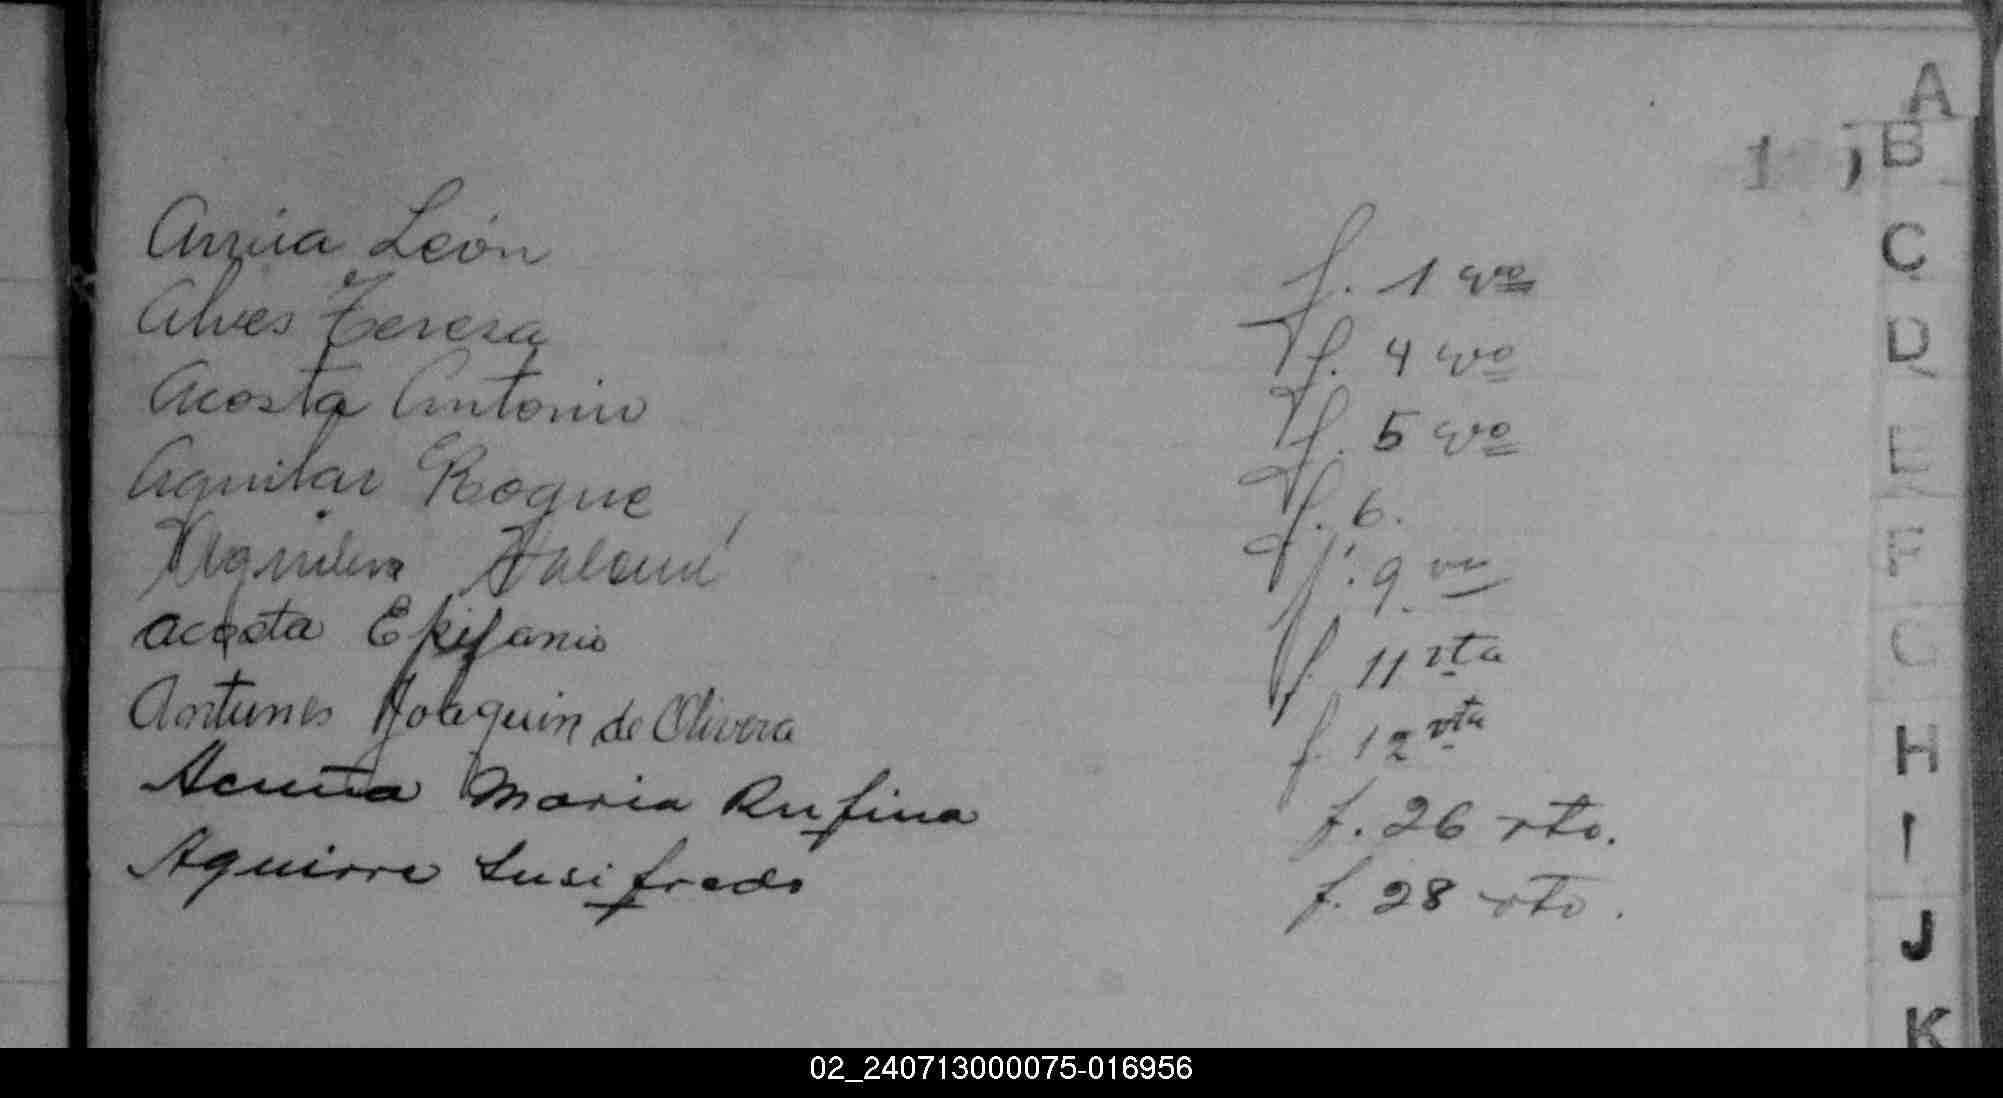 A
1
B
C
D
E
F
G
H
I
J
K
León f. 1 vo
Alves Teresa f. 4 vo
Acosta Antonio f. 5 vo
Aguilar Roque f. 6.
Aguilera Salomé f. 9 vo
Acosta Epifanio f. 11 vta
Antunes Joaquin de Olivera f. 12 vta
Acuña Maria Rufina f. 26 vto.
Aguirre Lusifredo f. 28 vto.
02_240713000075-016956